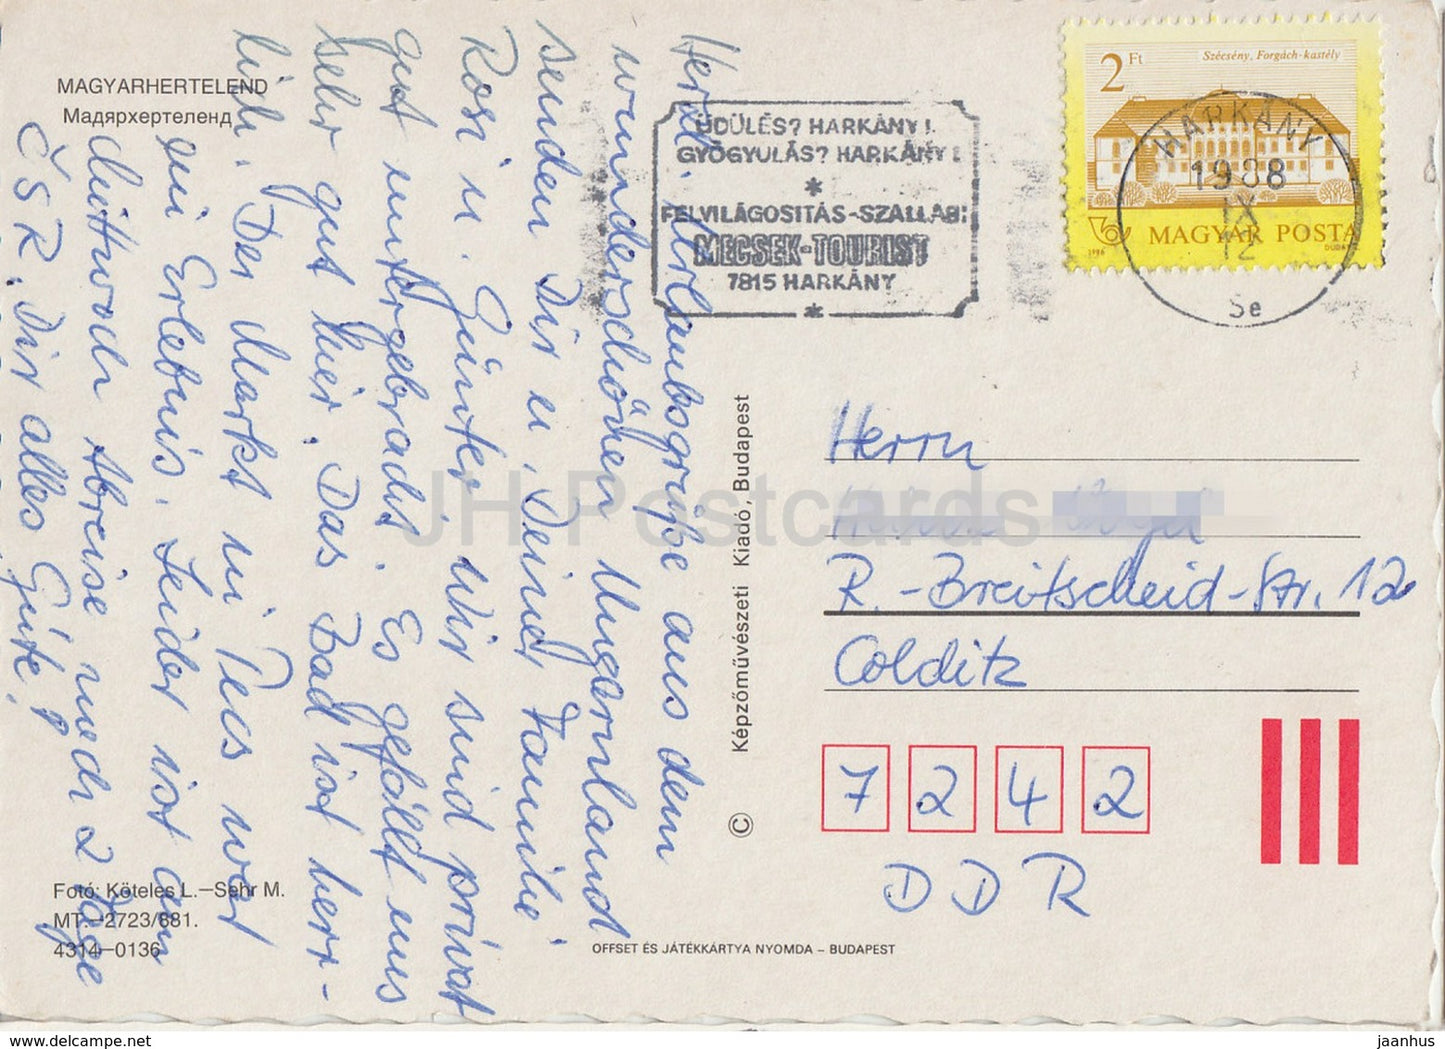 MAGYARHERTELEND
Мадярхертеленд
Herzl. Urlaubsgrüße aus dem
wunderschönen Ungarnland
senden Dir u. Deiner Familie
Rosi u. Günter. Wir sind privat
gut untergebracht. Es gefällt uns
sehr gut hier. Das Bad ist herr-
lich. Der Markt in Pecs war
ein Erlebnis. Leider ist am
Mittwoch Abreise nach 2 Tage
ČSR. Dir alles Gute!
Fotó: Köteles L.—Sehr M.
MT.—2723/881.
4314—0136
ÜDÜLÉS? HARKÁNY!
GYÓGYULÁS? HARKÁNY!
*
FELVILÁGOSITÁS-SZÁLLÁS:
MECSEK-TOURIST
7815 HARKÁNY
*
2 Ft
Szécsény, Forgách-kastély
1986
MAGYAR POSTA
HARKÁNY
1988
IX
12
Se
© Képzőművészeti Kiadó, Budapest
Herrn
R.-Breitscheid-Str. 12
Colditz
7 2 4 2
DDR
OFFSET ÉS JÁTÉKKÁRTYA NYOMDA – BUDAPEST
JH Postcards
delcampe.net
jaanhus